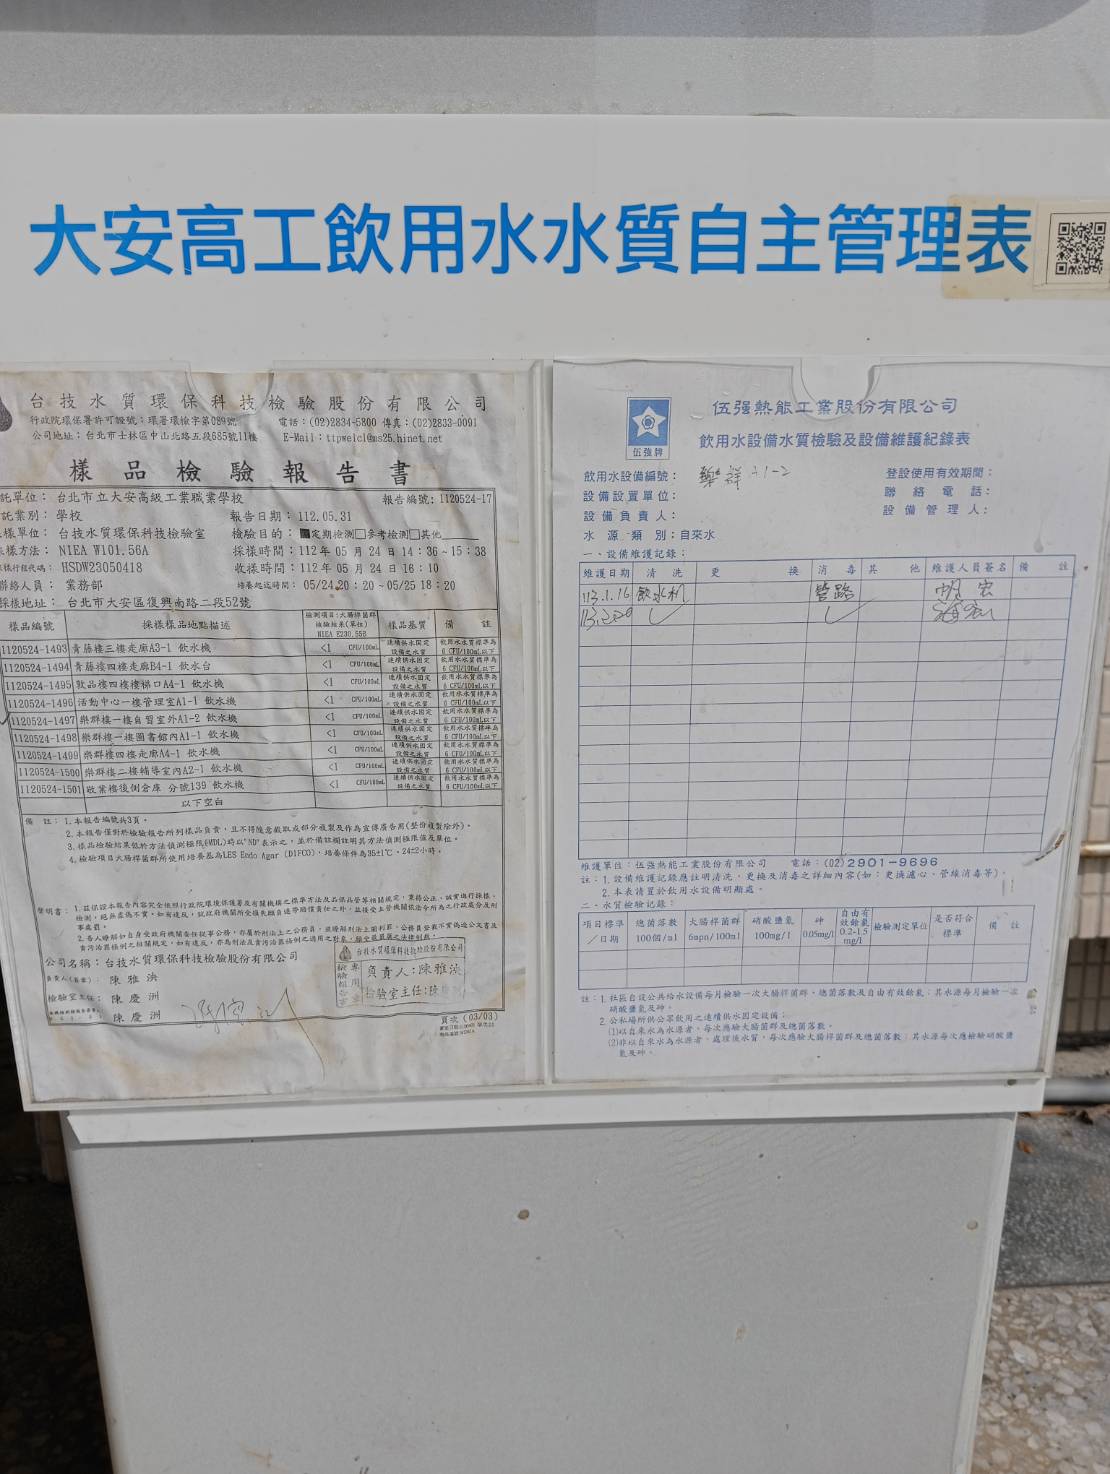 大安高工飲用水水質自主管理表
台技水質環保科技檢驗股份有限公司
行政院環保署許可證號：環署環檢字第089號 電話：(02)2834-5800 傳真：(02)2833-0091
公司地址：台北市士林區中山北路五段685號11樓 E-Mail：ttpweicl@ms25.hinet.net
樣品檢驗報告書
託單位：台北市立大安高級工業職業學校 報告編號：1120524-17
託業別：學校 報告日期：112.05.31
樣單位：台技水質環保科技檢驗室 檢驗目的：■定期檢測□參考檢測□其他
樣方法：NIEA W101.56A 採樣時間：112年05月24日14：36~15：38
採樣行程代碼：HSDW23050418 收樣時間：112年05月24日16：10
聯絡人員：業務部 培養起迄時間：05/24.20：20~05/25 18：20
採樣地址：台北市大安區復興南路二段52號
樣品編號 採樣樣品地點描述 檢測項目：大腸桿菌群 檢驗結果(單位) NIEA E230.55B 樣品基質 備註
1120524-1493 青藤樓三樓走廊A3-1 飲水機 <1 CFU/100mL 連續供水固定設備之水質 飲用水水質標準為6 CFU/100mL以下
1120524-1494 青藤樓四樓走廊B4-1 飲水台 <1 CFU/100mL 連續供水固定設備之水質 飲用水水質標準為6 CFU/100mL以下
1120524-1495 敦品樓四樓樓梯口A4-1 飲水機 <1 CFU/100mL 連續供水固定設備之水質 飲用水水質標準為6 CFU/100mL以下
1120524-1496 活動中心一樓管理室A1-1 飲水機 <1 CFU/100mL 連續供水固定設備之水質 飲用水水質標準為6 CFU/100mL以下
1120524-1497 樂群樓一樓自習室外A1-2 飲水機 <1 CFU/100mL 連續供水固定設備之水質 飲用水水質標準為6 CFU/100mL以下
1120524-1498 樂群樓一樓圖書館內A1-1 飲水機 <1 CFU/100mL 連續供水固定設備之水質 飲用水水質標準為6 CFU/100mL以下
1120524-1499 樂群樓四樓走廊A4-1 飲水機 <1 CFU/100mL 連續供水固定設備之水質 飲用水水質標準為6 CFU/100mL以下
1120524-1500 樂群樓二樓輔導室內A2-1 飲水機 <1 CFU/100mL 連續供水固定設備之水質 飲用水水質標準為6 CFU/100mL以下
1120524-1501 敬業樓後側倉庫 分號139 飲水機 <1 CFU/100mL 連續供水固定設備之水質 飲用水水質標準為6 CFU/100mL以下
以下空白
備註：1.本報告編號共3頁。
2.本報告僅對於檢驗報告所列樣品負責，且不得隨意截取或部分複製及作為宣傳廣告用(整份複製除外)。
3.樣品檢驗結果低於方法偵測極限(MDL)時以"ND"表示之，並於備註欄註明其方法偵測極限值及單位。
4.檢驗項目大腸桿菌群所使用培養基為LES Endo Agar (DIFCO)，培養條件為35±1℃、24±2小時。
聲明書：
公司名稱：台技水質環保科技檢驗股份有限公司
負責人(簽章)：陳雅泱
檢驗室主任：陳慶洲
陳慶洲
台技水質環保科技檢驗股份有限公司
檢驗報告專用章
負責人：陳雅泱
檢驗室主任：陳
頁次（03/03）
伍強牌
伍強熱能工業股份有限公司
飲用水設備水質檢驗及設備維護紀錄表
飲用水設備編號：樂群 登設使用有效期間：
設備設置單位： 聯絡電話：
設備負責人： 設備管理人：
水源類別：自來水
一、設備維護記錄：
維護日期 清洗 更換 消毒 其他 維護人員簽名 備註
113.1.16 飲水机 管路
113.2.20 ✓ ✓
維護單位：伍強熱能工業股份有限公司 電話：(02)2901-9696
註：1.設備維護記錄應註明清洗、更換及消毒之詳細內容(如：更換濾心、管線消毒等)。
2.本表請置於飲用水設備明顯處。
二、水質檢驗記錄：
項目標準／日期 總菌落數 100個/ml 大腸桿菌群 6mpn/100ml 硝酸鹽氮 100mg/l 砷 0.05mg/l 自由有效餘氯 0.2-1.5 mg/l 檢驗測定單位 是否符合標準 備註
註：1.社區自設公共給水設備每月檢驗一次大腸桿菌群、總菌落數及自由有效餘氯；其水源每月檢驗一次
硝酸鹽氮及砷。
2.公私場所供公眾飲用之連續供水固定設備：
(1)以自來水為水源者，每次應驗大腸菌群及總菌落數。
(2)非以自來水為水源者，處理後水質，每次應驗大腸桿菌群及總菌落數；其水源每次應檢驗硝酸鹽
氮及砷。